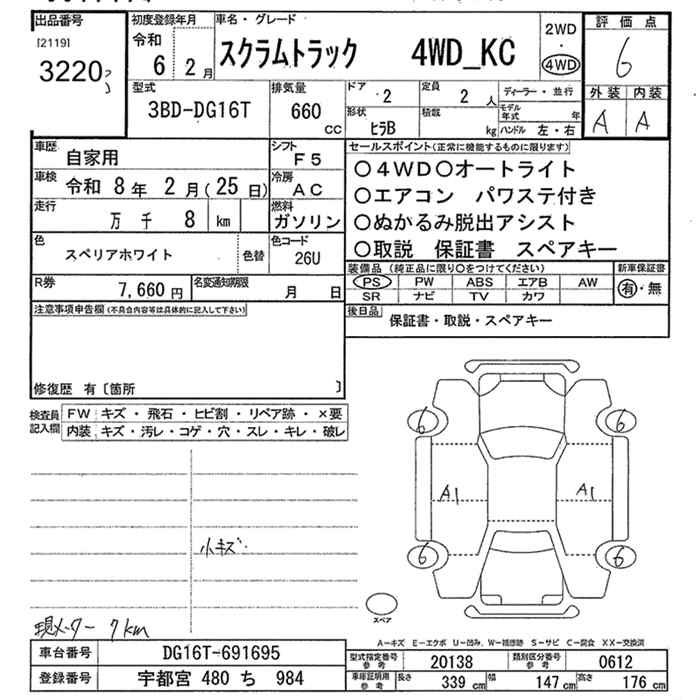 出品番号
[2119]
3220
初度登録年月
令和
6年2月
車名・グレード
スクラムトラック 4WD_KC
2WD
・
4WD
評価点
6
外装 内装
A A
型式
3BD-DG16T
排気量
660
CC
ドア 2
定員 2 人
ディーラー・並行
形状 ヒラB
積載 kg
モデル年式 年
ハンドル 左・右
車歴 自家用
シフト F5
車検 令和 8年 2月(25日)
冷房 AC
走行 万 千 8 km
燃料 ガソリン
色 スペリアホワイト
色替
色コード 26U
R券 7,660円
名変通知期限 月 日
セールスポイント(正常に機能するものに限ります)
〇4WD〇オートライト
〇エアコン パワステ付き
〇ぬかるみ脱出アシスト
〇取説 保証書 スペアキー
装備品(純正品に限り〇をつけてください)
新車保証書
PS PW ABS エアB AW
SR ナビ TV カワ
有・無
後日品 保証書・取説・スペアキー
注意事項申告欄(不具合内容等は具体的に記入して下さい)
修復歴 有〔箇所 〕
検査員記入欄
FW キズ・飛石・ヒビ割・リペア跡・×要
内装 キズ・汚レ・コゲ・穴・スレ・キレ・破レ
6 6
A1 A1
小キズ
6 6
スペア
現メーター 7km
A-キズ E-エクボ U-凹み W-補修跡 S-サビ C-腐食 XX-交換済
車台番号 DG16T-691695
型式指定番号 参考 20138
類別区分番号 参考 0612
登録番号 宇都宮 480 ち 984
車庫証明用 参考
長さ 339 cm
幅 147 cm
高さ 176 cm